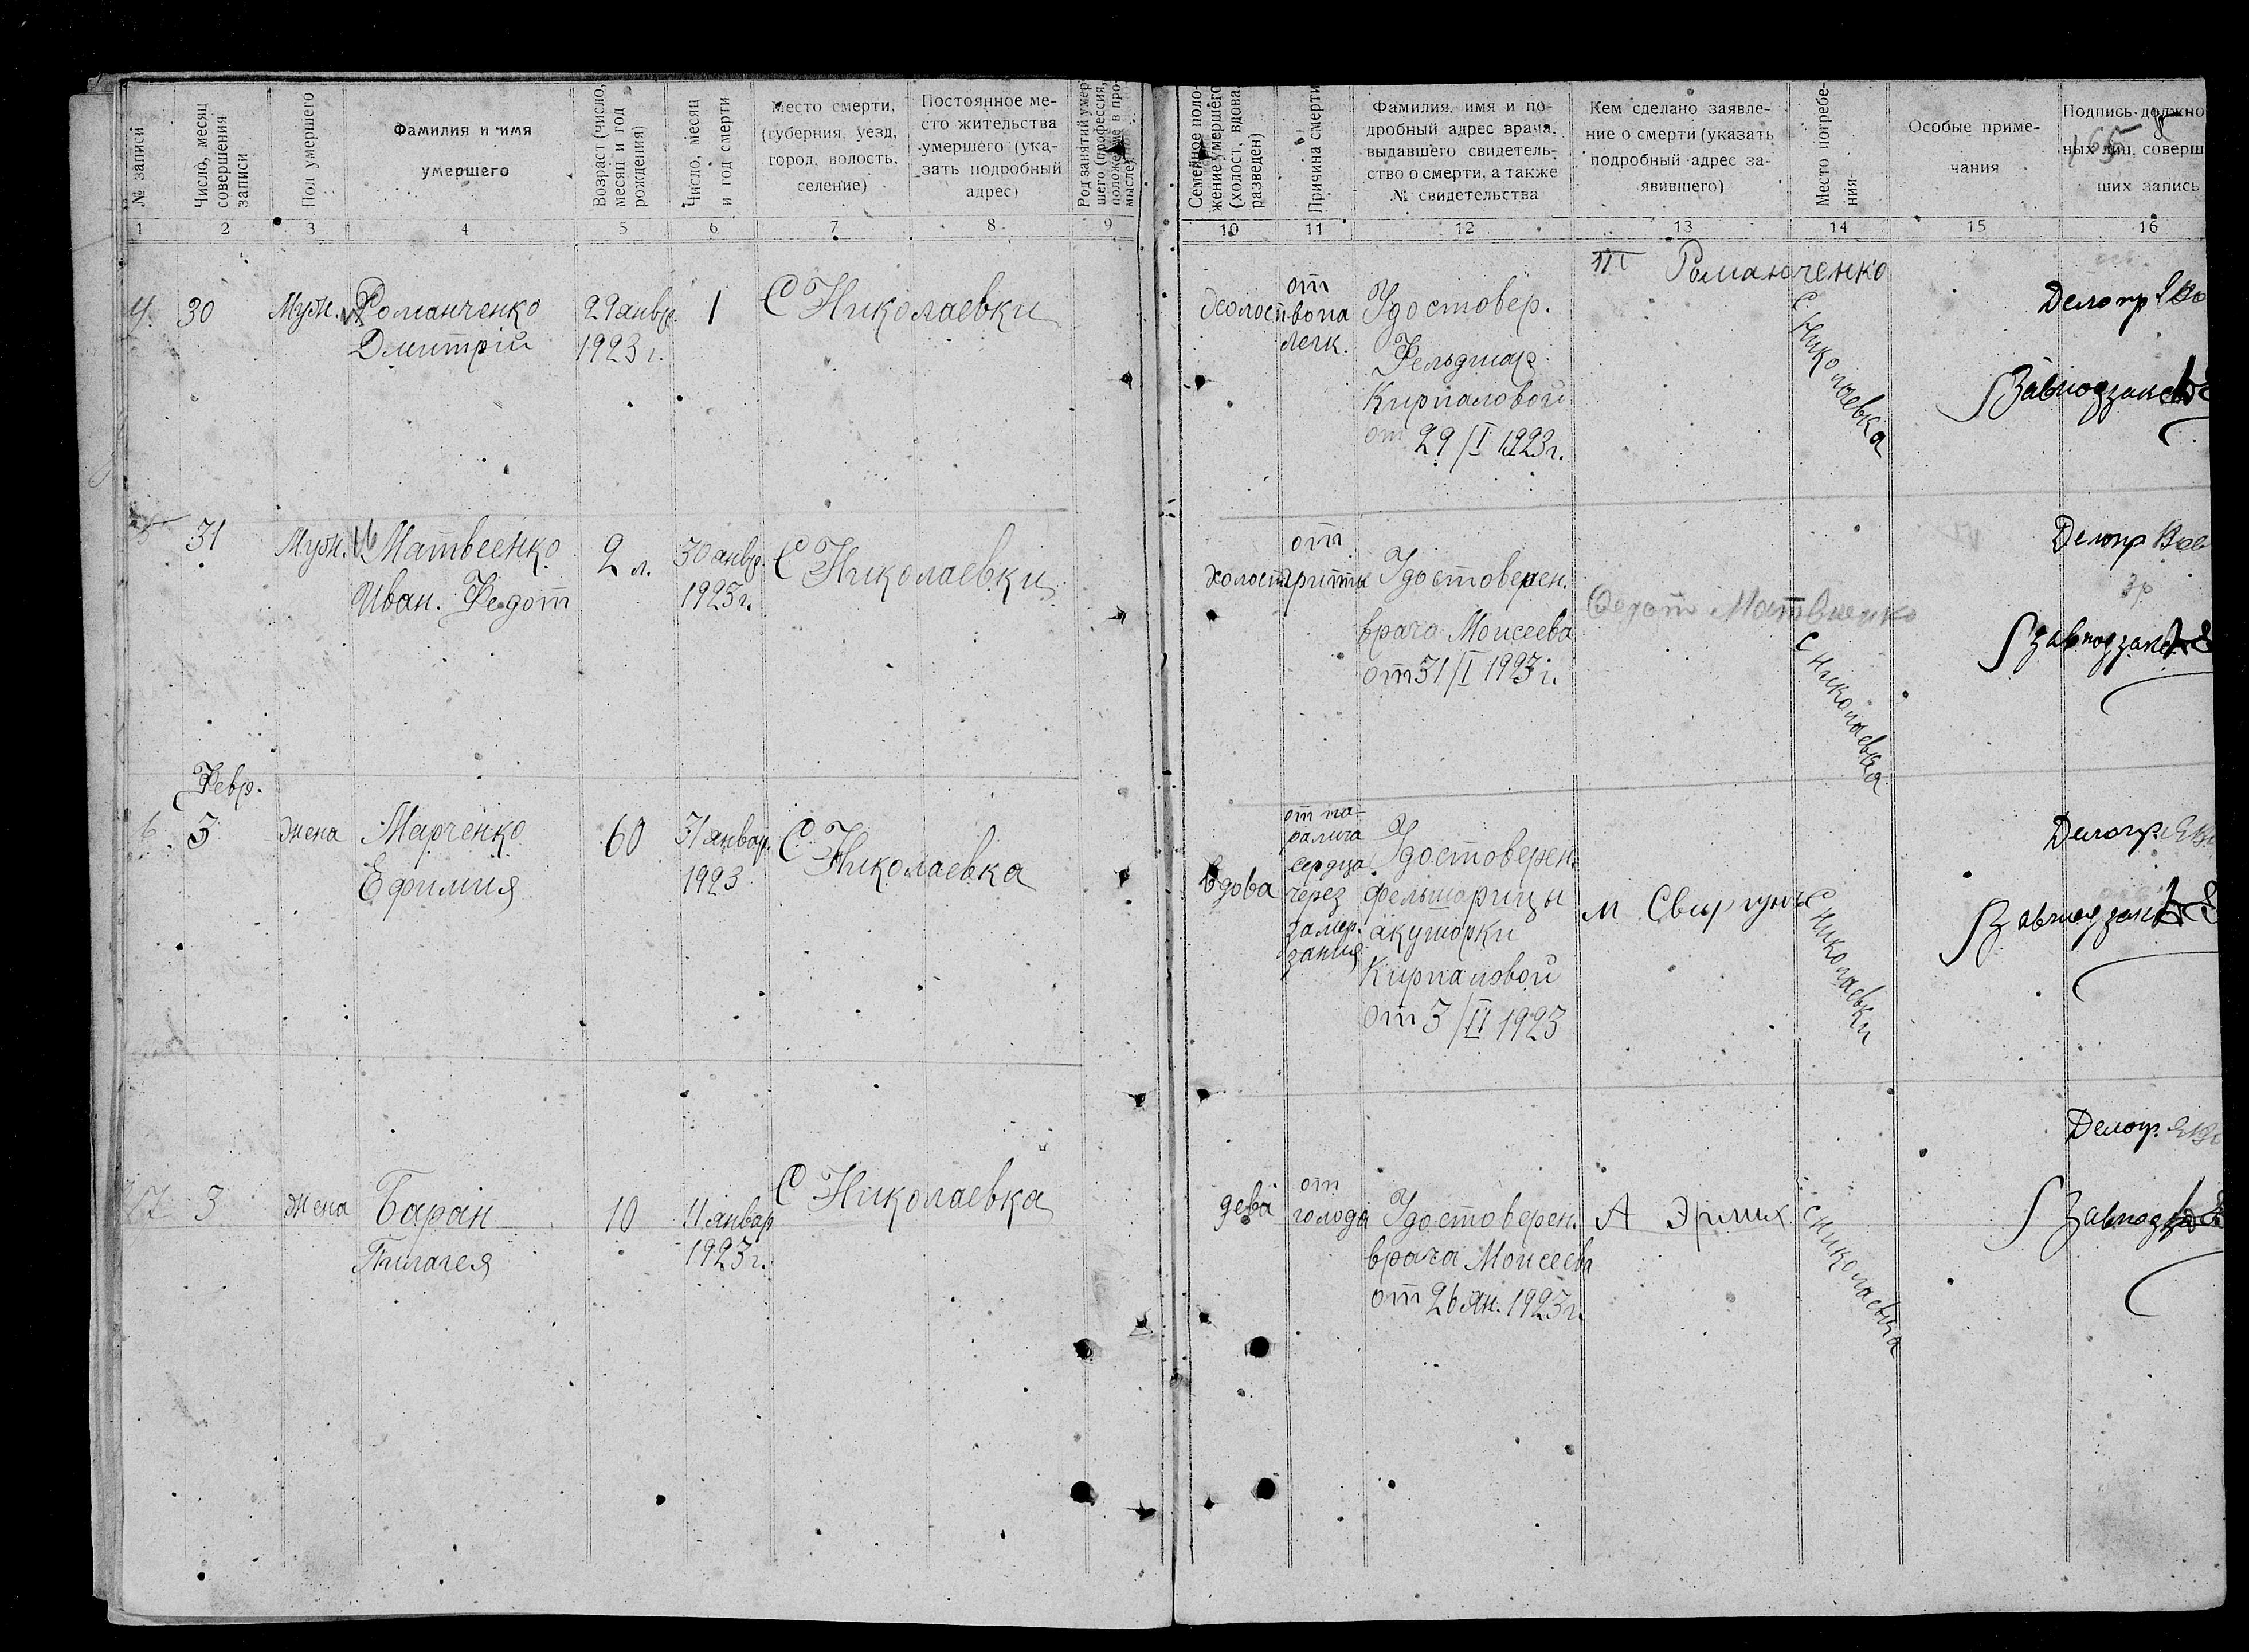 № записи
Число, месяц
совершения
записи
Пол умершего
Фамилия и имя
умершего
Возраст (число,
месяц и год
рождения)
Число, месяц
и год смерти
Место смерти,
(губерния, уезд,
город, волость,
селение)
Постоянное ме-
сто жительства
умершего (ука-
зать подробный
адрес)
Род занятий умер-
шего (профессия,
положение в про-
мысле)
Семейное поло-
жение умершего
(холост, вдова,
разведен)
Причина смерти
Фамилия, имя и по-
дробный адрес врача,
выдавшего свидетель-
ство о смерти, а также
№ свидетельства
Кем сделано заявле-
ние о смерти (указать
подробный адрес за-
явившего)
Место погребе-
ния
Особые приме-
чания
Подпись должно
ных лиц, соверш
ших запись
165
1 2 3 4 5 6 7 8 9 10 11 12 13 14 15 16
4. 30 Муж. Романченко
Дмитрій
29 январ.
1923 г.
1
С Николаевки
холост
от
вопа
легк.
Удостовер.
Фельдшар
Кирпаловой
от 29/I 1923г.
Романченко
С Николаевка
Делопр
Завподзаг
5 31 Муж. Матвеенко
Иван. Федот
2 л.
30 январ.
1923г.
С Николаевки
холост
от
Удостоверен.
врача Моисеева
от 31/I 1923 г.
Федот Матвиенко
С Николаевка
Делопр
Завподзаг
Февр.
6 3 жена Марченко
Ефимия
60
31 январ.
1923
С Николаевка
вдова
от па-
ралича
сердца
через
замер-
зания
Удостоверен.
фельшарицы
акушорки
Кирпаловой
от 3/II 1923
М Свиргунъ
С Николаевки
Делопр.
Завподзаг
7 3 жена Баран
Пилагея
10
11 январ
1923г.
С Николаевка
дева
от
голода
Удостоверен.
врача Моисеева
от 26 Ян. 1923г.
А Эрлих
С Николаевка
Делопр.
Завподзаг